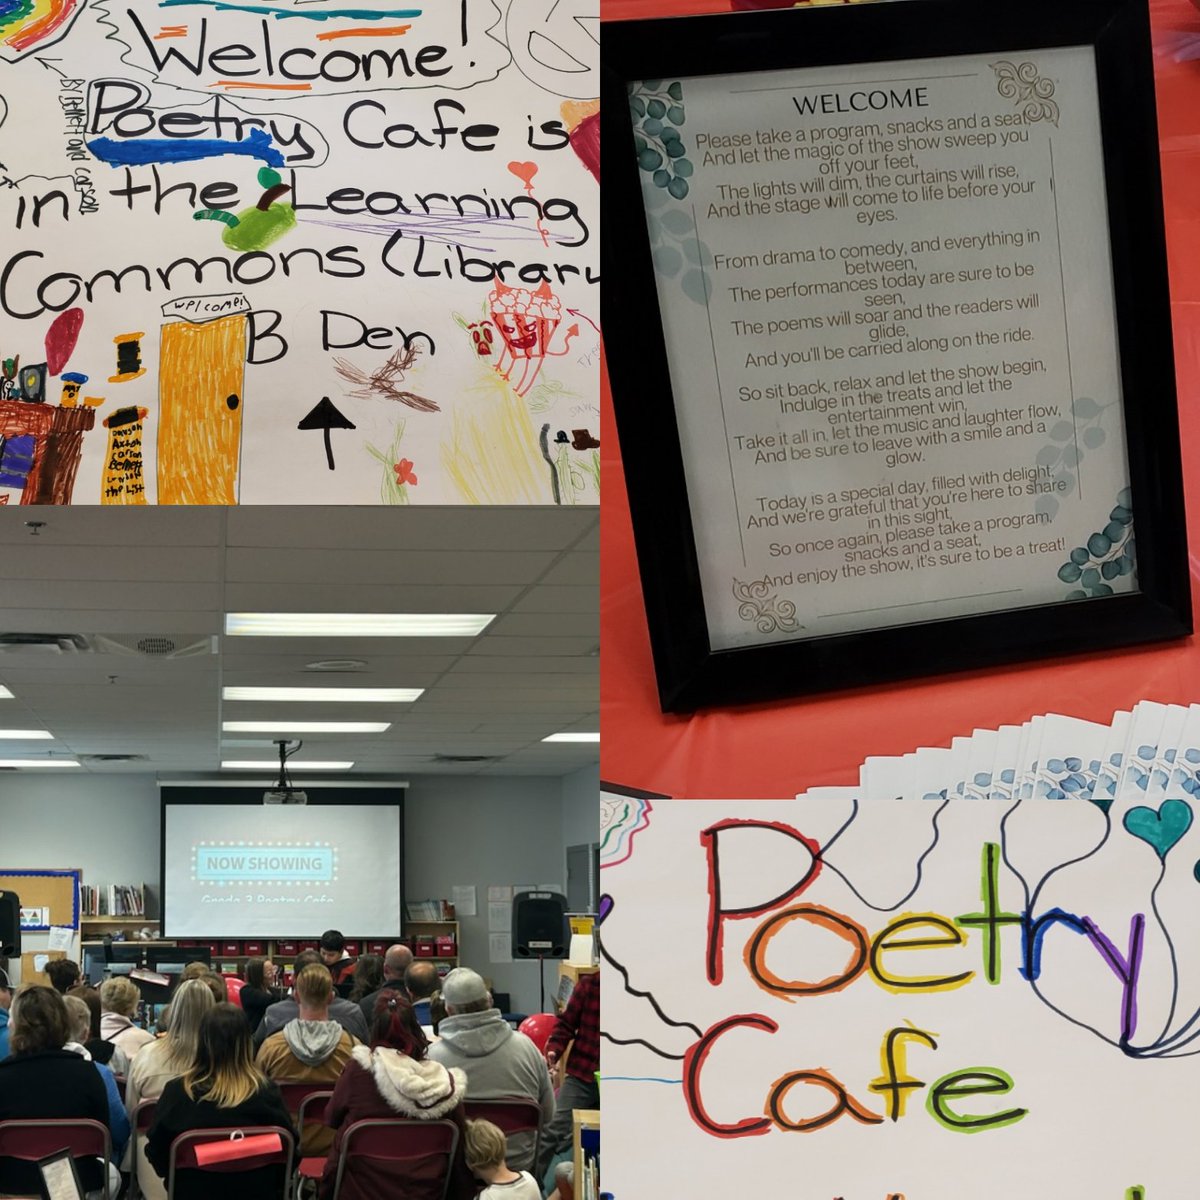 Welcome!
Poetry Cafe is
in the Learning
Commons (Library
B Den
welcome!
By Bennett and Carson
Carson
Bennett
London
the List
WELCOME
Please take a program, snacks and a seat
And let the magic of the show sweep you
off your feet,
The lights will dim, the curtains will rise,
And the stage will come to life before your
eyes.
From drama to comedy, and everything in
between,
The performances today are sure to be
seen,
The poems will soar and the readers will
glide,
And you'll be carried along on the ride.
So sit back, relax and let the show begin,
Indulge in the treats and let the
entertainment win,
Take it all in, let the music and laughter flow,
And be sure to leave with a smile and a
glow.
Today is a special day, filled with delight,
And we're grateful that you're here to share
in this sight,
So once again, please take a program,
snacks and a seat,
And enjoy the show, it's sure to be a treat!
NOW SHOWING
Grade 3 Poetry Cafe
Poetry
Cafe